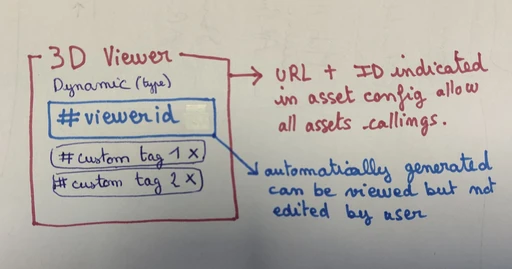 3D Viewer
Dynamic (type)
#viewerid
# custom tag 1 x
# custom tag 2 x
URL + ID indicated
in asset config allow
all assets callings.
automatically generated
can be viewed but not
edited by user